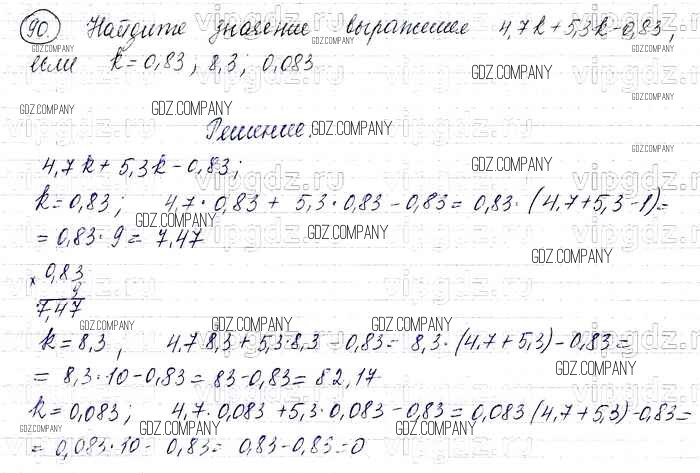 90. Найдите значение выражения 4,7k + 5,3k - 0,83,
если k = 0,83; 8,3; 0,083
Решение.
4,7k + 5,3k - 0,83;
k = 0,83; 4,7 · 0,83 + 5,3 · 0,83 - 0,83 = 0,83 · (4,7+5,3-1) =
= 0,83 · 9 = 7,47
x 0,83
9
7,47
k = 8,3, 4,7 8,3 + 5,3·8,3 - 0,83 = 8,3 · (4,7 + 5,3) - 0,83 =
= 8,3 · 10 - 0,83 = 83 - 0,83 = 82,17
k = 0,083; 4,7 · 0,083 + 5,3 · 0,083 - 0,83 = 0,083 (4,7 + 5,3) - 0,83 =
= 0,083 · 10 - 0,83 = 0,83 - 0,83 = 0
GDZ.COMPANY
vipgdz.ru